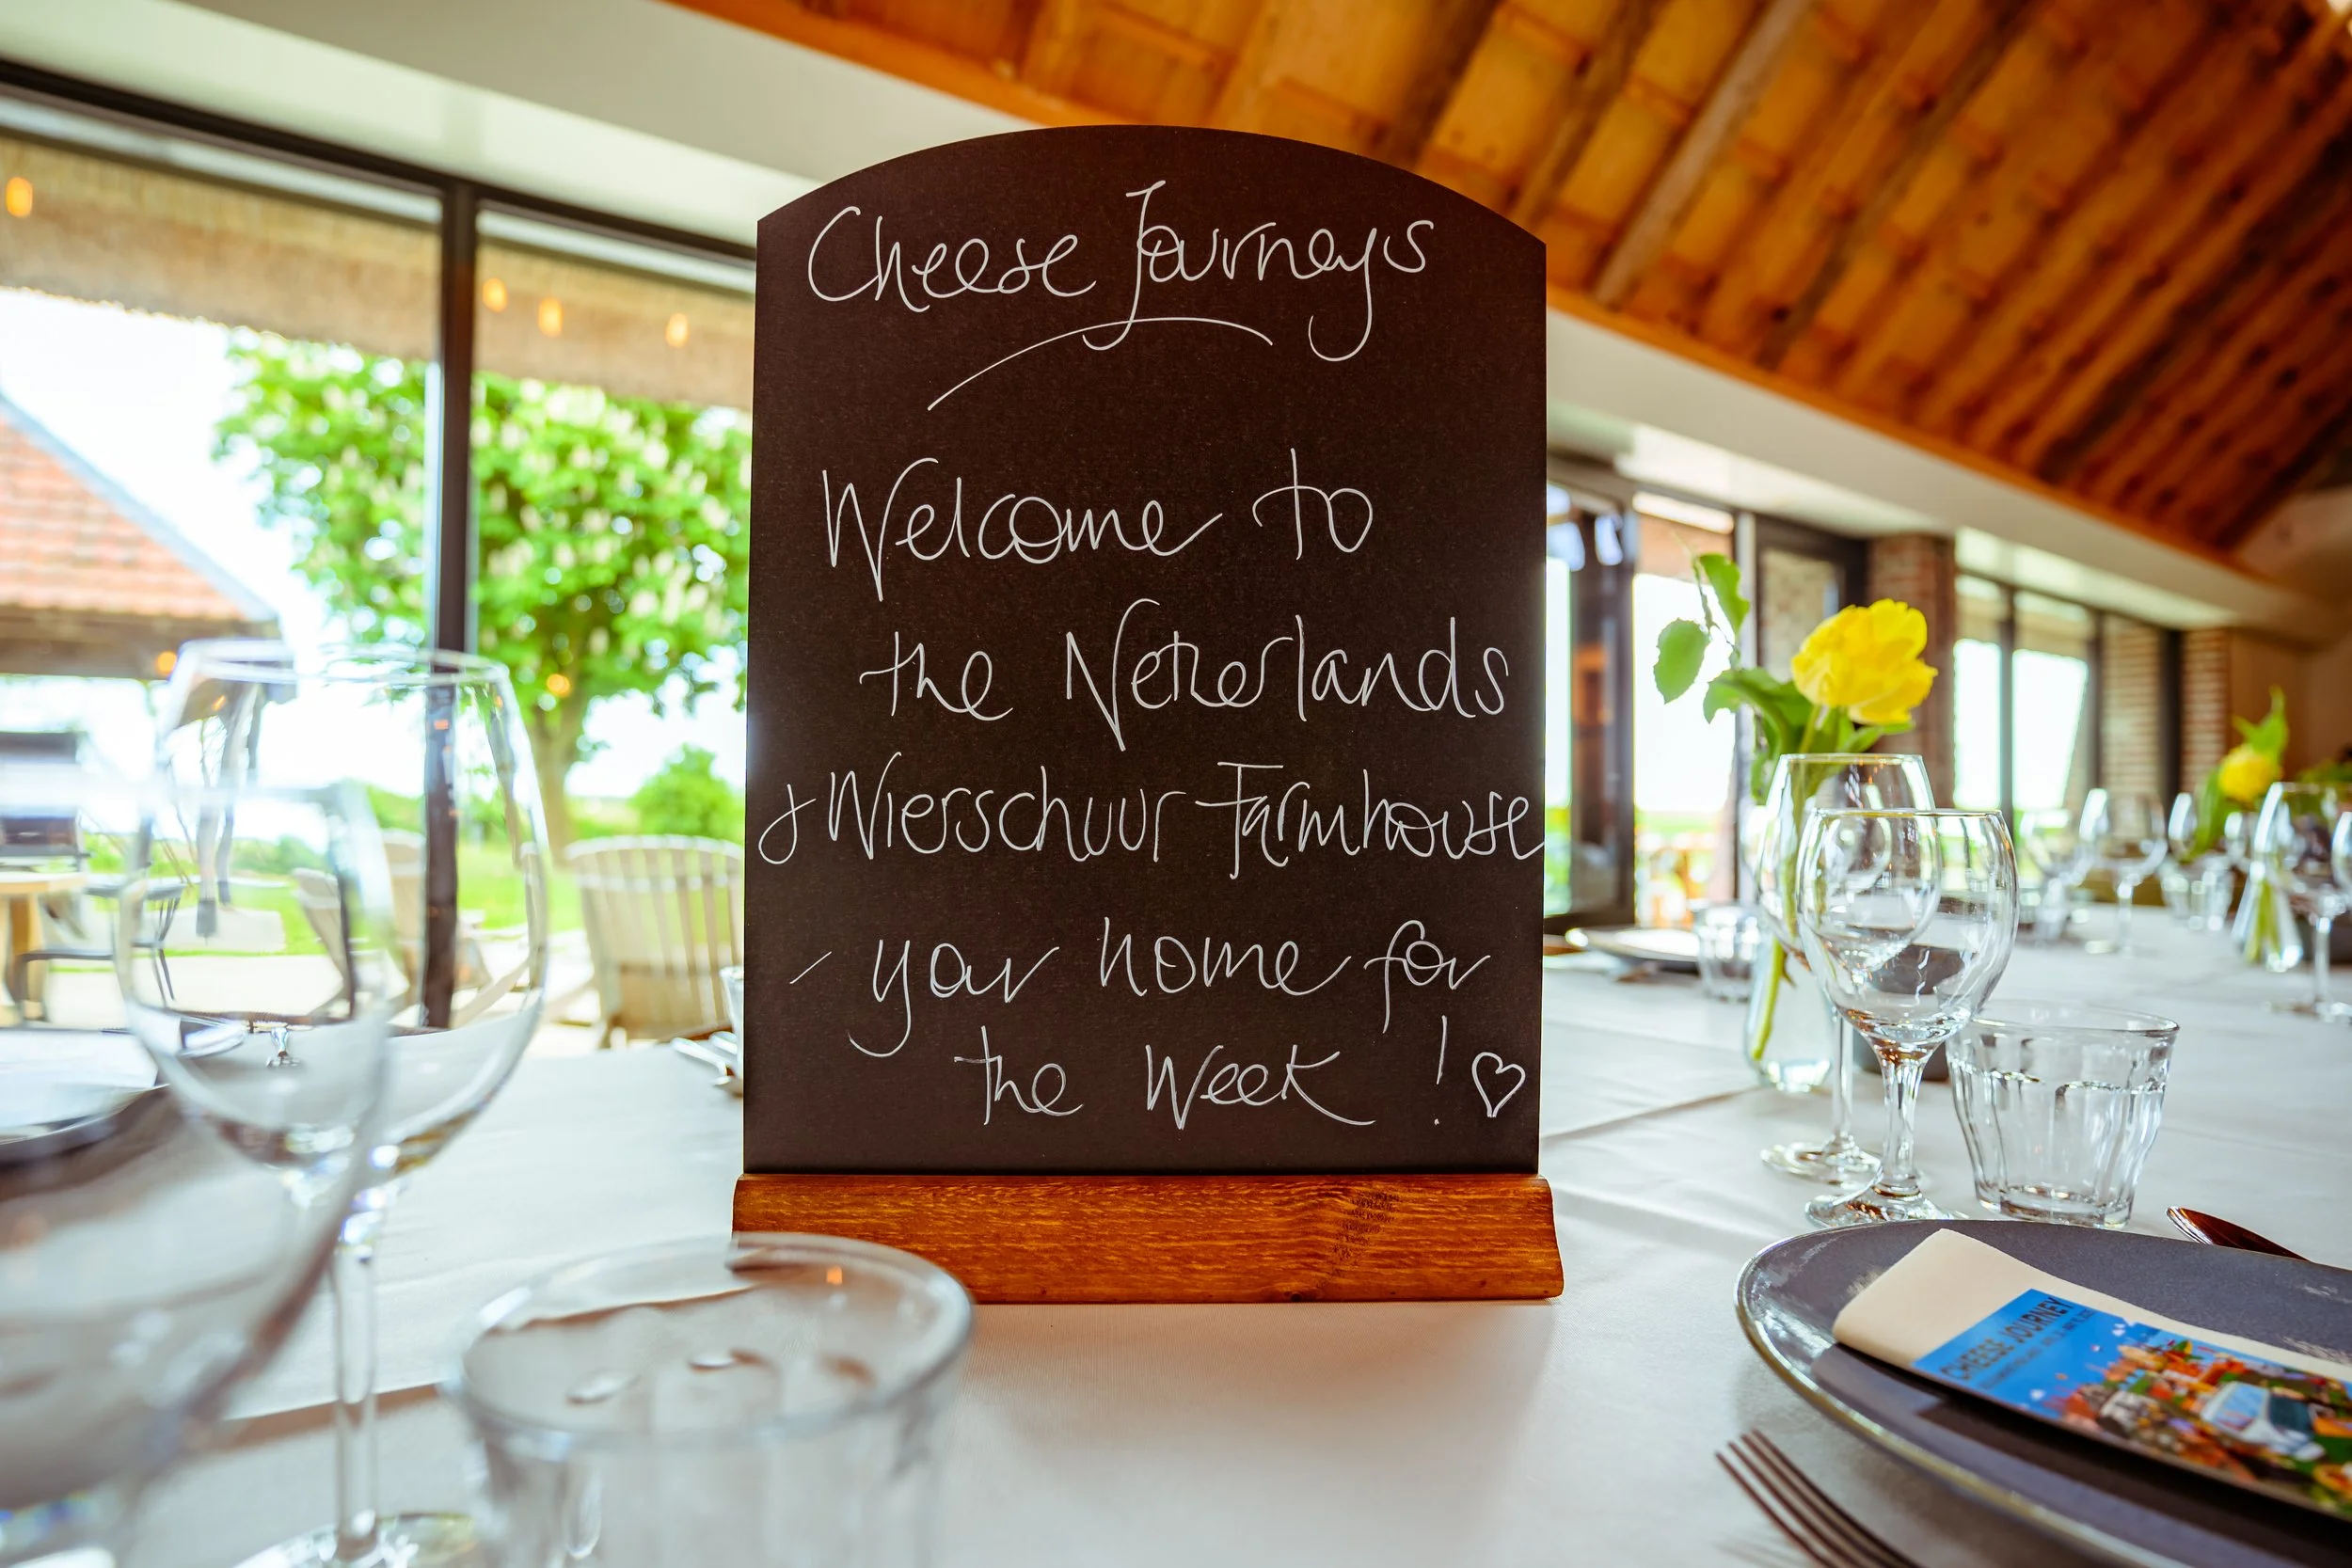 Cheese Journeys
Welcome to
the Netherlands
& Wierschuur Farmhouse
- your home for
the Week ! ♡
CHEESE JOURNEY